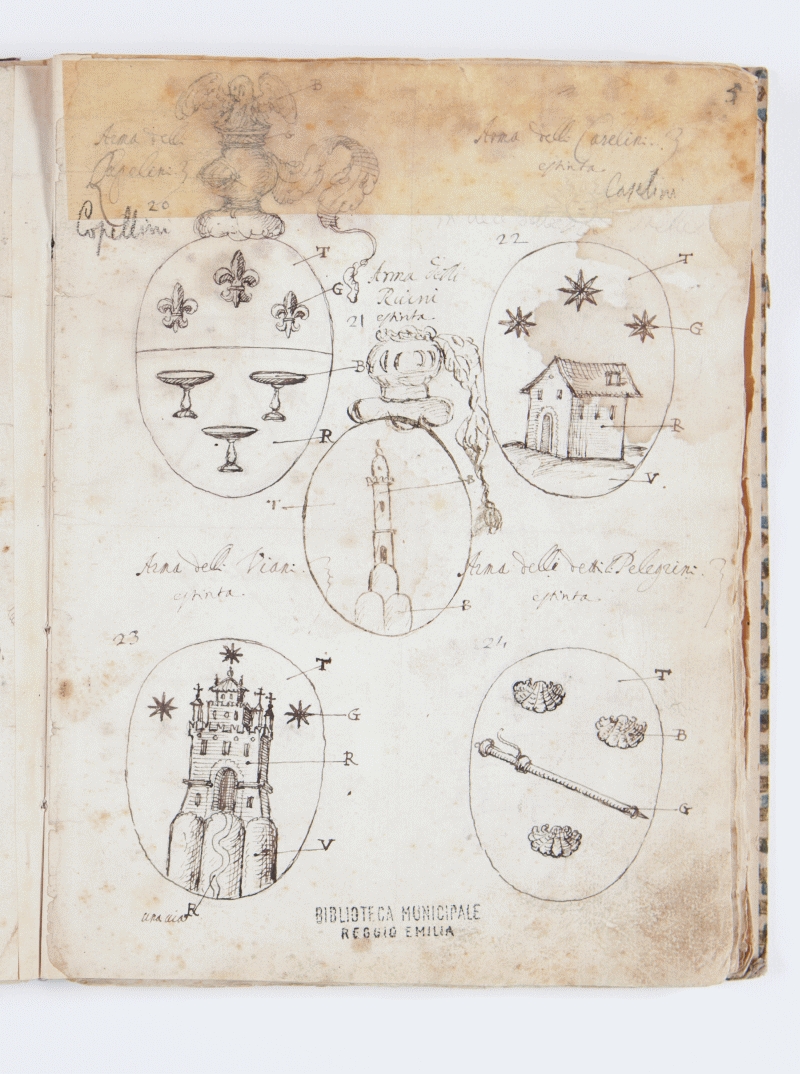 5
B
Arma delli
Capelini
20
Copellini
T
G
B
R
Arma delli
Ruini
estinta.
21
T
B
B
Arma delli Caselini.
estinta.
Caselini
22
T
G
R
V
Arma delli Viani.
estinta.
23
T
G
R
V
R
una via
Arma delli detti Pelegrini
estinta.
24
T
B
G
BIBLIOTECA MUNICIPALE
REGGIO EMILIA